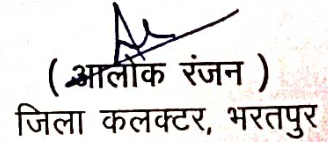 ( आलोक रंजन )
जिला कलक्टर, भरतपुर